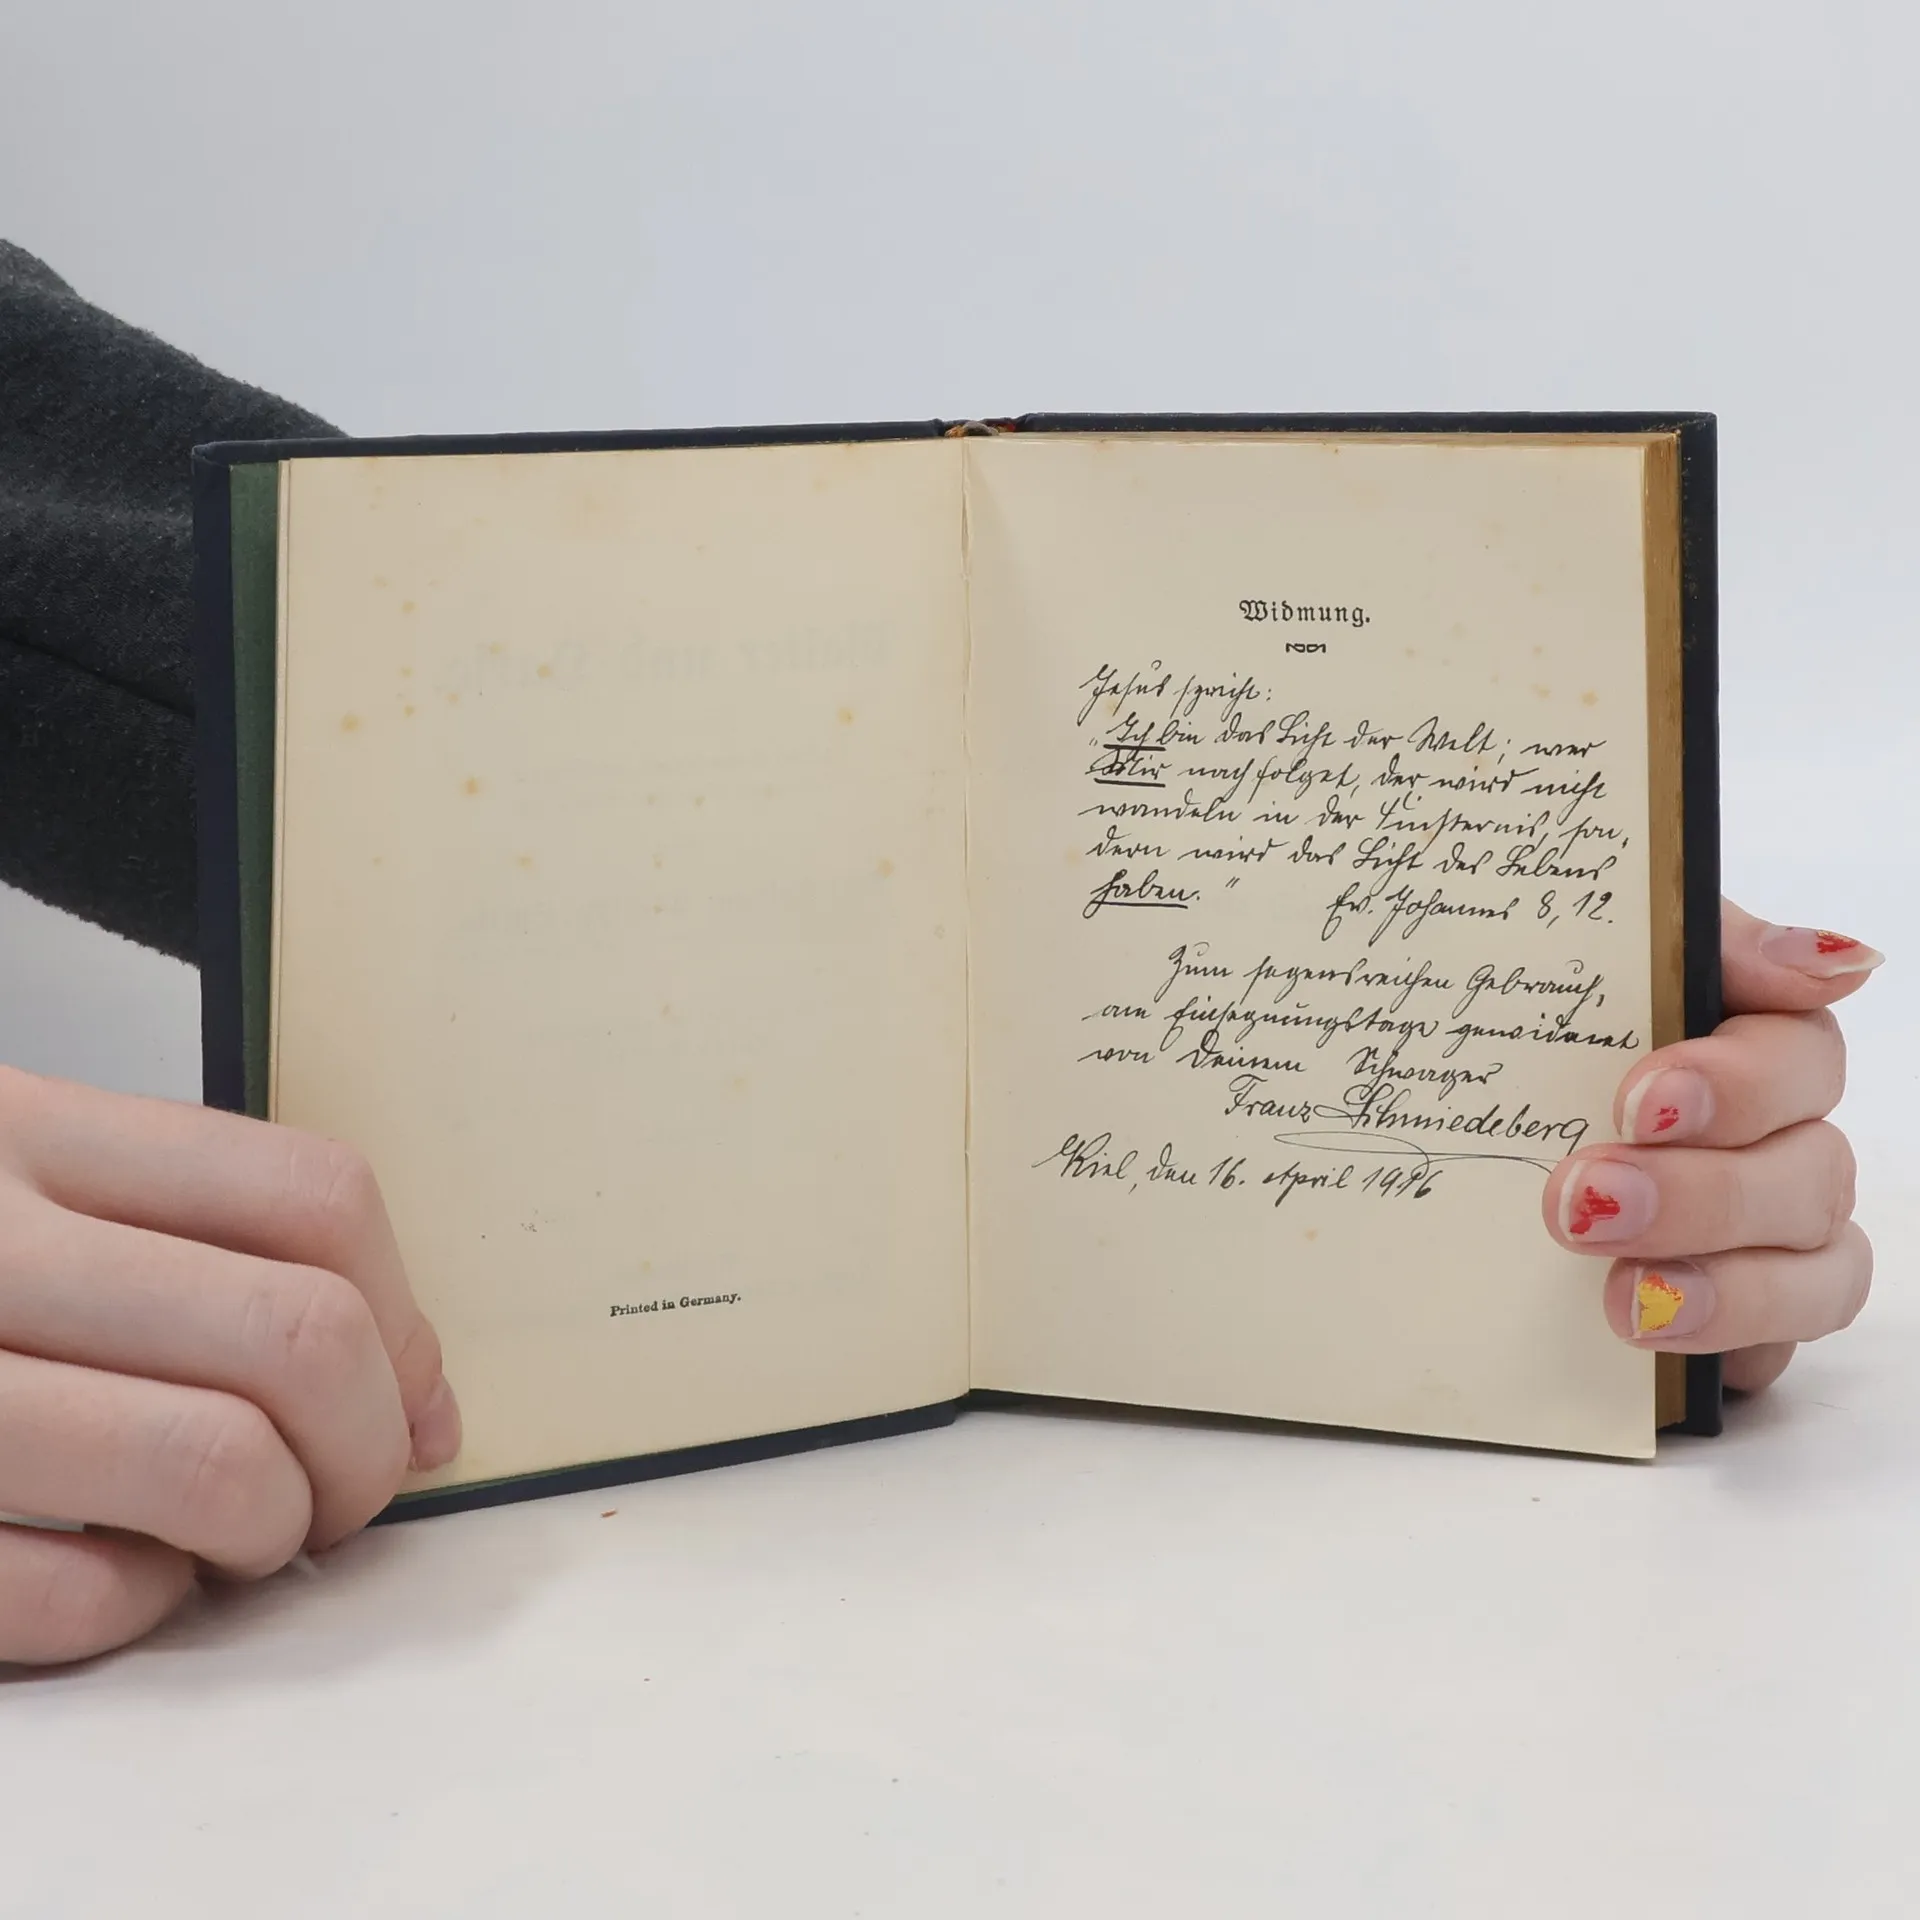 Printed in Germany.
Widmung.
Jesus spricht:
„Ich bin das Licht der Welt; wer
Mir nachfolget, der wird nicht
wandeln in der Finsternis, son-
dern wird das Licht des Lebens
haben."
Ev. Johannes 8, 12.
Zum segensreichen Gebrauch,
am Einsegnungstage gewidmet
von Deinem Schwager
Franz Schmiedeberg
Kiel, den 16. April 1916